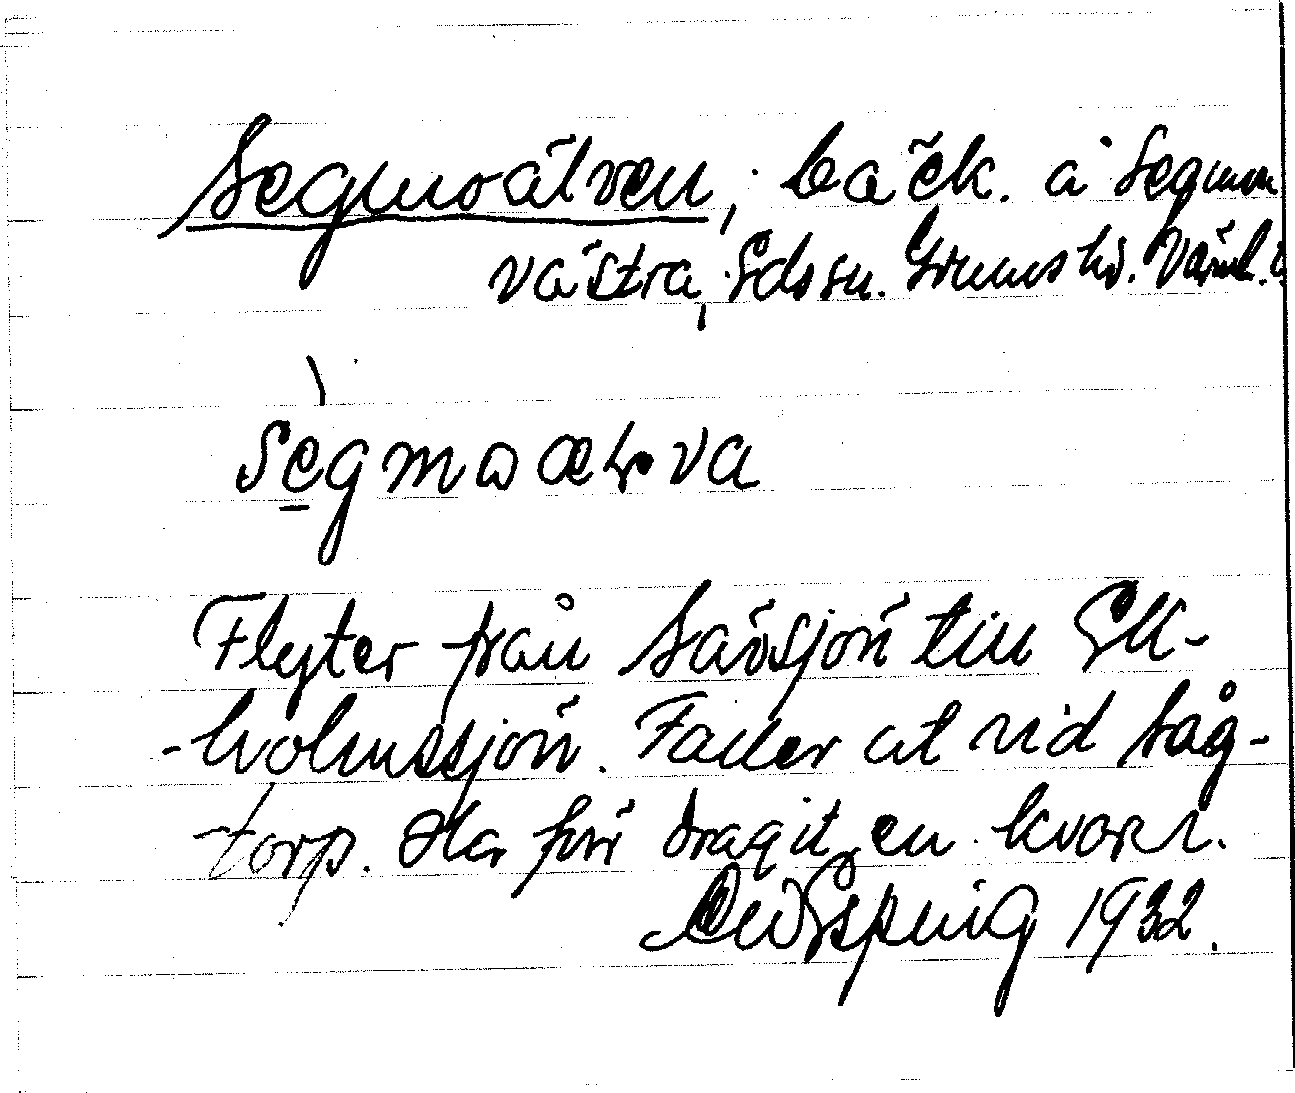 Segmoälven, bäck. å Segmon
västra, Eds sn. Grums hd. Värml.
Segmoælva
Flyter från Sävsjön till Ek-
-holmssjön. Faller ut vid Såg-
-torp. Har förr dragit en kvarn.
1932.